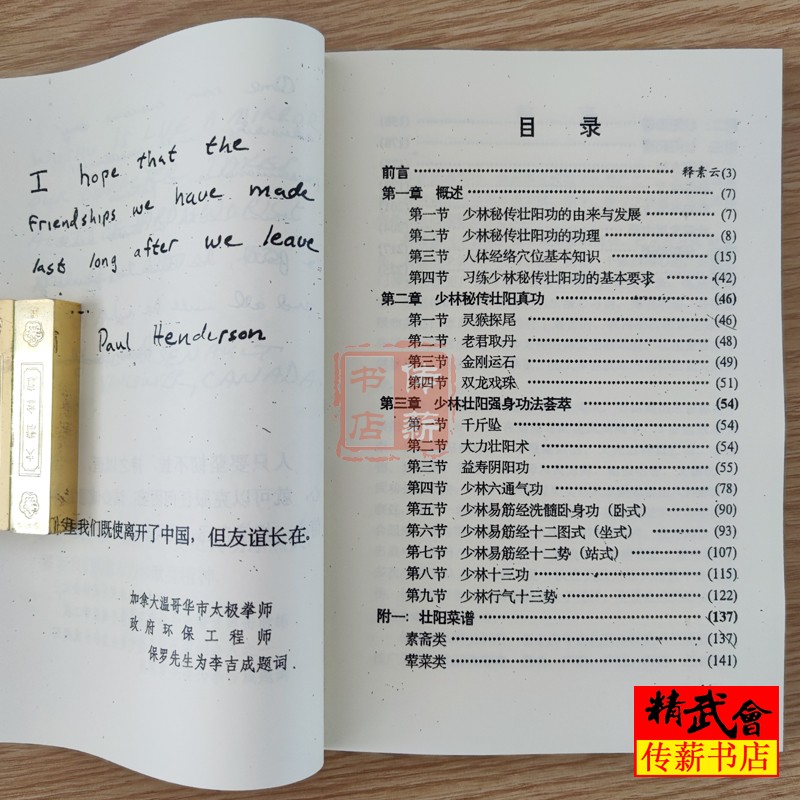 I hope that the
Friendships we have made
last long after we leave
Paul Henderson
我们既使离开了中国，但友谊长在。
加拿大温哥华市太极拳师
政府环保工程师
保罗先生为李吉成题词.
目 录
前言 释素云(3)
第一章 概述 (7)
第一节 少林秘传壮阳功的由来与发展 (7)
第二节 少林秘传壮阳功的功理 (8)
第三节 人体经络穴位基本知识 (15)
第四节 习练少林秘传壮阳功的基本要求 (42)
第二章 少林秘传壮阳真功 (46)
第一节 灵猴探尾 (46)
第二节 老君取丹 (48)
第三节 金刚运石 (49)
第四节 双龙戏珠 (51)
第三章 少林壮阳强身功法荟萃 (54)
第一节 千斤坠 (54)
第二节 大力壮阳术 (54)
第三节 益寿阴阳功 (55)
第四节 少林六通气功 (78)
第五节 少林易筋经洗髓卧身功（卧式） (90)
第六节 少林易筋经十二图式（坐式） (93)
第七节 少林易筋经十二势（站式） (107)
第八节 少林十三功 (115)
第九节 少林行气十三势 (122)
附一：壮阳菜谱 (137)
素斋类 (137)
荤菜类 (141)
传薪书店
精武會
传薪书店